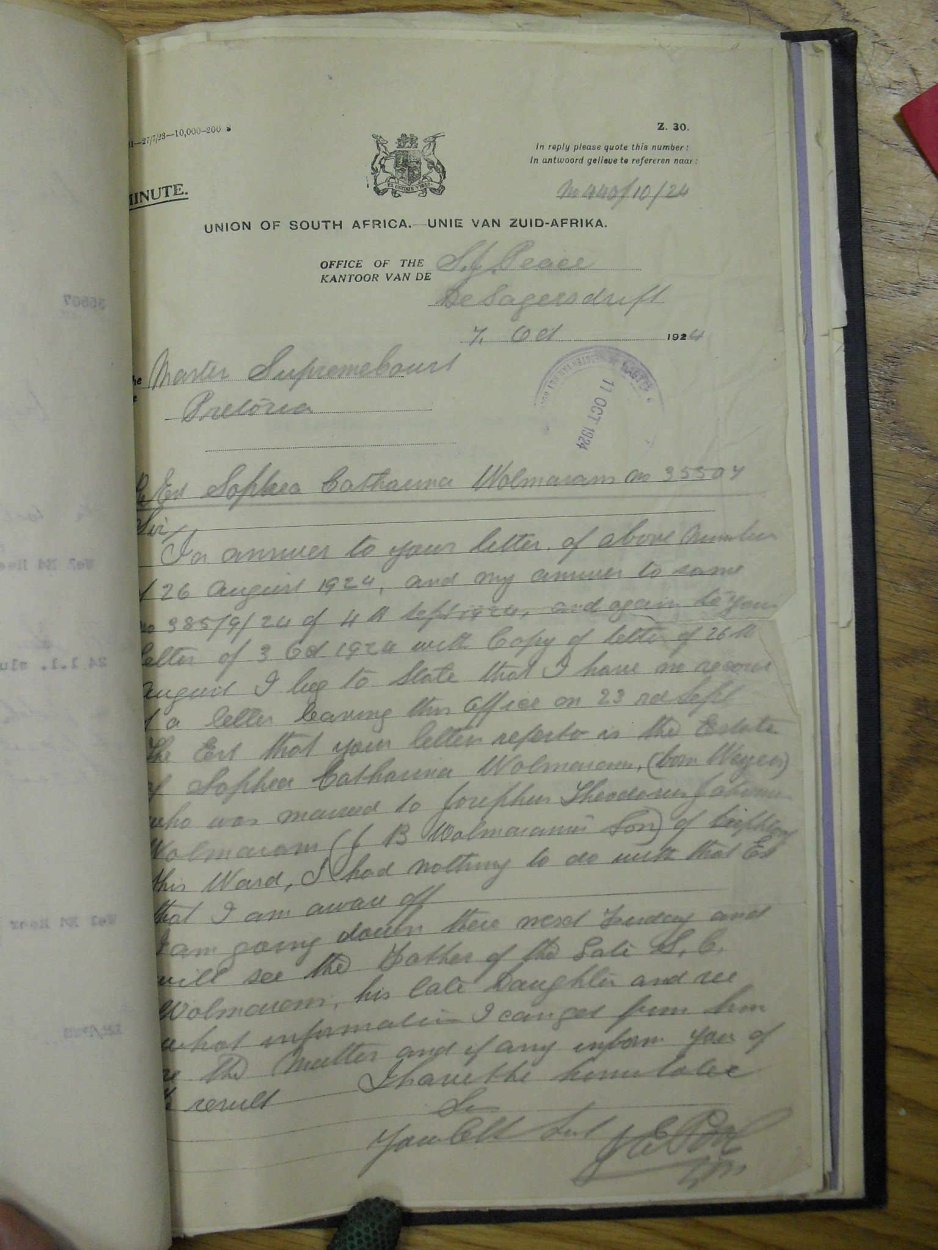 —27/7/23—10,000-200 S
Z. 30.
In reply please quote this number:
In antwoord gelieve te refereren naar:
M 440/10/24
MINUTE.
UNION OF SOUTH AFRICA.—UNIE VAN ZUID-AFRIKA.
OFFICE OF THE
KANTOOR VAN DE
S.J. Peace
De Lagersdrift
7. Oct 1924
Master Supreme Court
Pretoria
11 OCT 1924
Est Sophea Catharina Wolmarans No 35507
Sir
In answer to your letter, of above number
of 26 August 1924, and my answer to same
no 385/9/24 of 4th Sept 1924, and again to your
letter of 3 Oct 1924 with Copy of letter of 26th
August I beg to State that I have no record
of a letter leaving this office on 23rd Sept
The Est that your letter refers to is the Estate
of Sophea Catharina Wolmarans, (born Weyers)
who was married to Josephus Theodorus
Wolmarans (J B Wolmarans's Son) of
this Ward, I had nothing to do with that Est
that I am aware off
I am going down there next Friday and
will see the Father of the Late S. C.
Wolmarans, his late Daughter and see
what information I can get from him
re the Matter and if any inform You of
the result I have the honour to be
Sir
Your Obt Svt